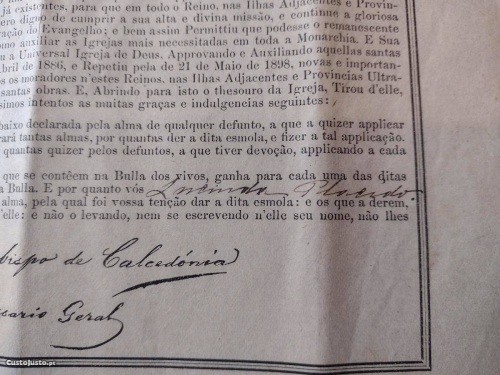 já existentes, para que em todo o Reino, nas Ilhas Adjacentes e Provin-
ero digno de cumprir a sua alta e divina missão, e continue a gloriosa
ração do Evangelho; e bem assim Permittiu que podesse o remanescente
omo auxiliar as Igrejas mais necessitadas em toda a Monarchia. E Sua
a Universal Igreja de Deus, Approvando e Auxiliando aquellas santas
bril de 1886, e Repetiu pela de 21 de Maio de 1898, novas e importan-
os os moradores n'estes Reinos, nas Ilhas Adjacentes e Provincias Ultra-
santas obras. E, Abrindo para isto o thesouro da Igreja, Tirou d'elle,
simos intentos as muitas graças e indulgencias seguintes:
baixo declarada pela alma de qualquer defunto, a que a quizer applicar
rará tantas almas, por quantas der a dita esmola, e fizer a tal applicação.
quantas quizer pelos defuntos, a que tiver devoção, applicando a cada
que se contêem na Bulla dos vivos, ganha para cada uma das ditas
a Bulla. E por quanto vós Lucinda Placido
alma, pela qual foi vossa tenção dar a dita esmola: e os que a derem,
'elle: e não o levando, nem se escrevendo n'elle seu nome, não lhes
bispo de Calcedónia
ssario Geral
CustoJusto.pt